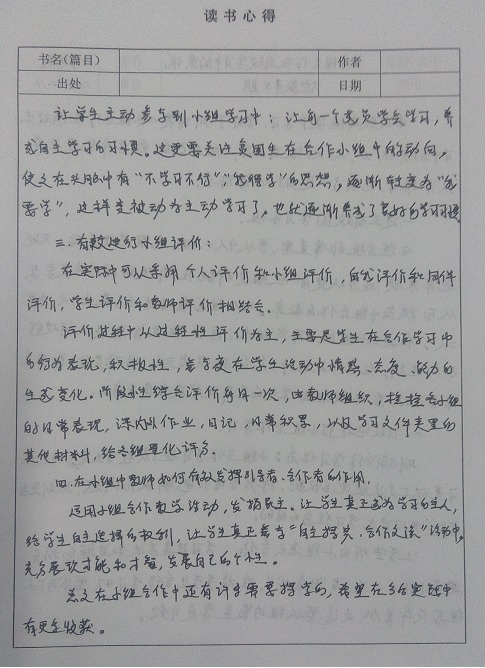 读书心得
书名(篇目) 作者
出处 日期
让学生主动参与到小组学习中；让每一个成员学会学习，养
成自主学习的习惯。这更要关注每圆生在合作小组中的动向，
使之在头脑中有“不学习不行”“我得学”的思想，逐渐转变为“我
要学”，这样变被动为主动学习了，也就逐渐养成了良好的学习习惯
三.有效进行小组评价：
在实际中可以采用个人评价和小组评价，自我评价和同伴
评价，学生评价和教师评价相结合。
评价过程中以过程性评价为主，主要是学生在合作学习中
的行为表现，积极性，参与度在学生活动中情感、态度、能力的
生成变化。阶段性综合评价每月一次，由教师组织，按
的日常表现，课内外作业，日记，日常积累，以及学习文件夹里的
其他材料，给各组量化评分。
四.在小组中教师如何有效发挥引导者、合作者的作用.
运用小组合作教学活动，发扬民主。让学生真正成为学习的主人，
给学生自主选择的权利，让学生真正参与“自主探究、合作交流”活动中，
充分展现才能和才智，发展自己的个性。
总之在小组合作中还有许多需要探学的，希望在今后实践中
有更多收获。